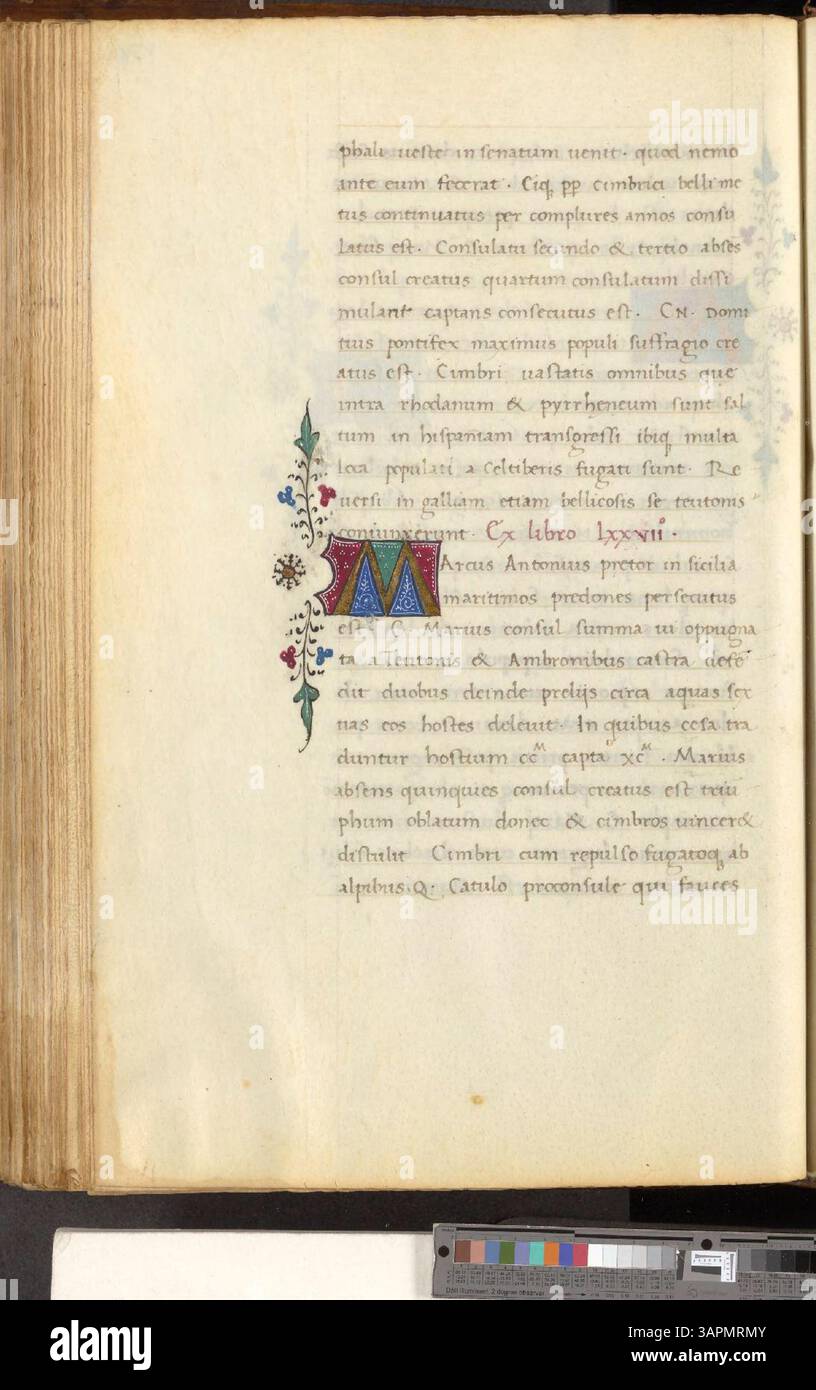 phali ueste in senatum uenit. quod nemo
ante eum fecerat. Eiq; pp cimbrici belli me
tus continuatus per complures annos consu
latus est. Consulatu secundo & tertio absẽs
consul creatus quartum consulatum dissi
mulant captans consecutus est. CN. DOMI
tius pontifex maximus populi suffragio cre
atus est. Cimbri uastatis omnibus que
intra rhodanum & pyrrheneum sunt sal
tum in hispaniam transgressi ibiq; multa
loca populati a Celtiberis fugati sunt. Re
uersi in galliam etiam bellicosis se teutonis
coniunxerunt. Ex libro lxxvii°.
MArcus Antonius pretor in sicilia
maritimos predones persecutus
est. C. Marius consul summa ui oppugna
ta a Teutonis & Ambronibus castra defẽ
dit duobus deinde prelijs circa aquas sex
tias eos hostes deleuit. In quibus cesa tra
duntur hostium ccᴹ capta xcᴹ. Marius
absens quinquies consul creatus est triũ
phum oblatum donec & cimbros uincer&
distulit Cimbri cum repulso fugatoq; ab
alpibus. Q. Catulo proconsule qui fauces
alamy
alamy
alamy
alamy
Image ID: 3APMRMY
www.alamy.com